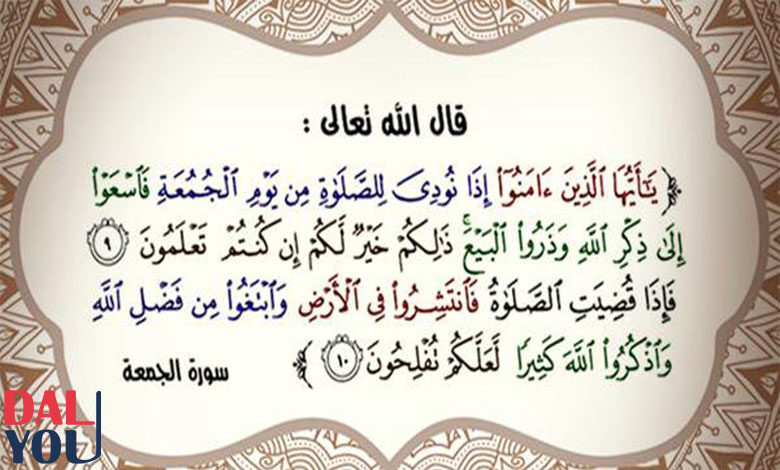 قال الله تعالى :
﴿ يَٰٓأَيُّهَا ٱلَّذِينَ ءَامَنُوٓاْ إِذَا نُودِيَ لِلصَّلَوٰةِ مِن يَوْمِ ٱلْجُمُعَةِ فَٱسْعَوْاْ
إِلَىٰ ذِكْرِ ٱللَّهِ وَذَرُواْ ٱلْبَيْعَۚ ذَٰلِكُمْ خَيْرٌ لَّكُمْ إِن كُنتُمْ تَعْلَمُونَ ٩
فَإِذَا قُضِيَتِ ٱلصَّلَوٰةُ فَٱنتَشِرُواْ فِي ٱلْأَرْضِ وَٱبْتَغُواْ مِن فَضْلِ ٱللَّهِ
وَٱذْكُرُواْ ٱللَّهَ كَثِيرًا لَّعَلَّكُمْ تُفْلِحُونَ ١٠ ﴾ سورة الجمعة
DAL
YOU